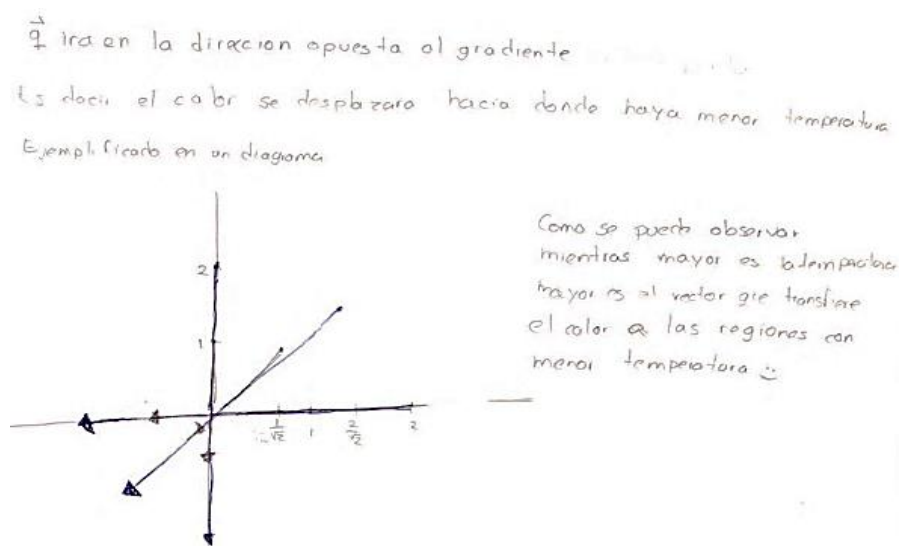 q⃗ ira en la direccion opuesta al gradiente
Es decir el calor se desplazara hacia donde haya menor temperatura
Ejemplificado en un diagrama
Como se puede observar
mientras mayor es
mayor es el vector que transfiere
el calor a las regiones con
menor temperatura :)
2
1
1/√2 1 2/√2 2